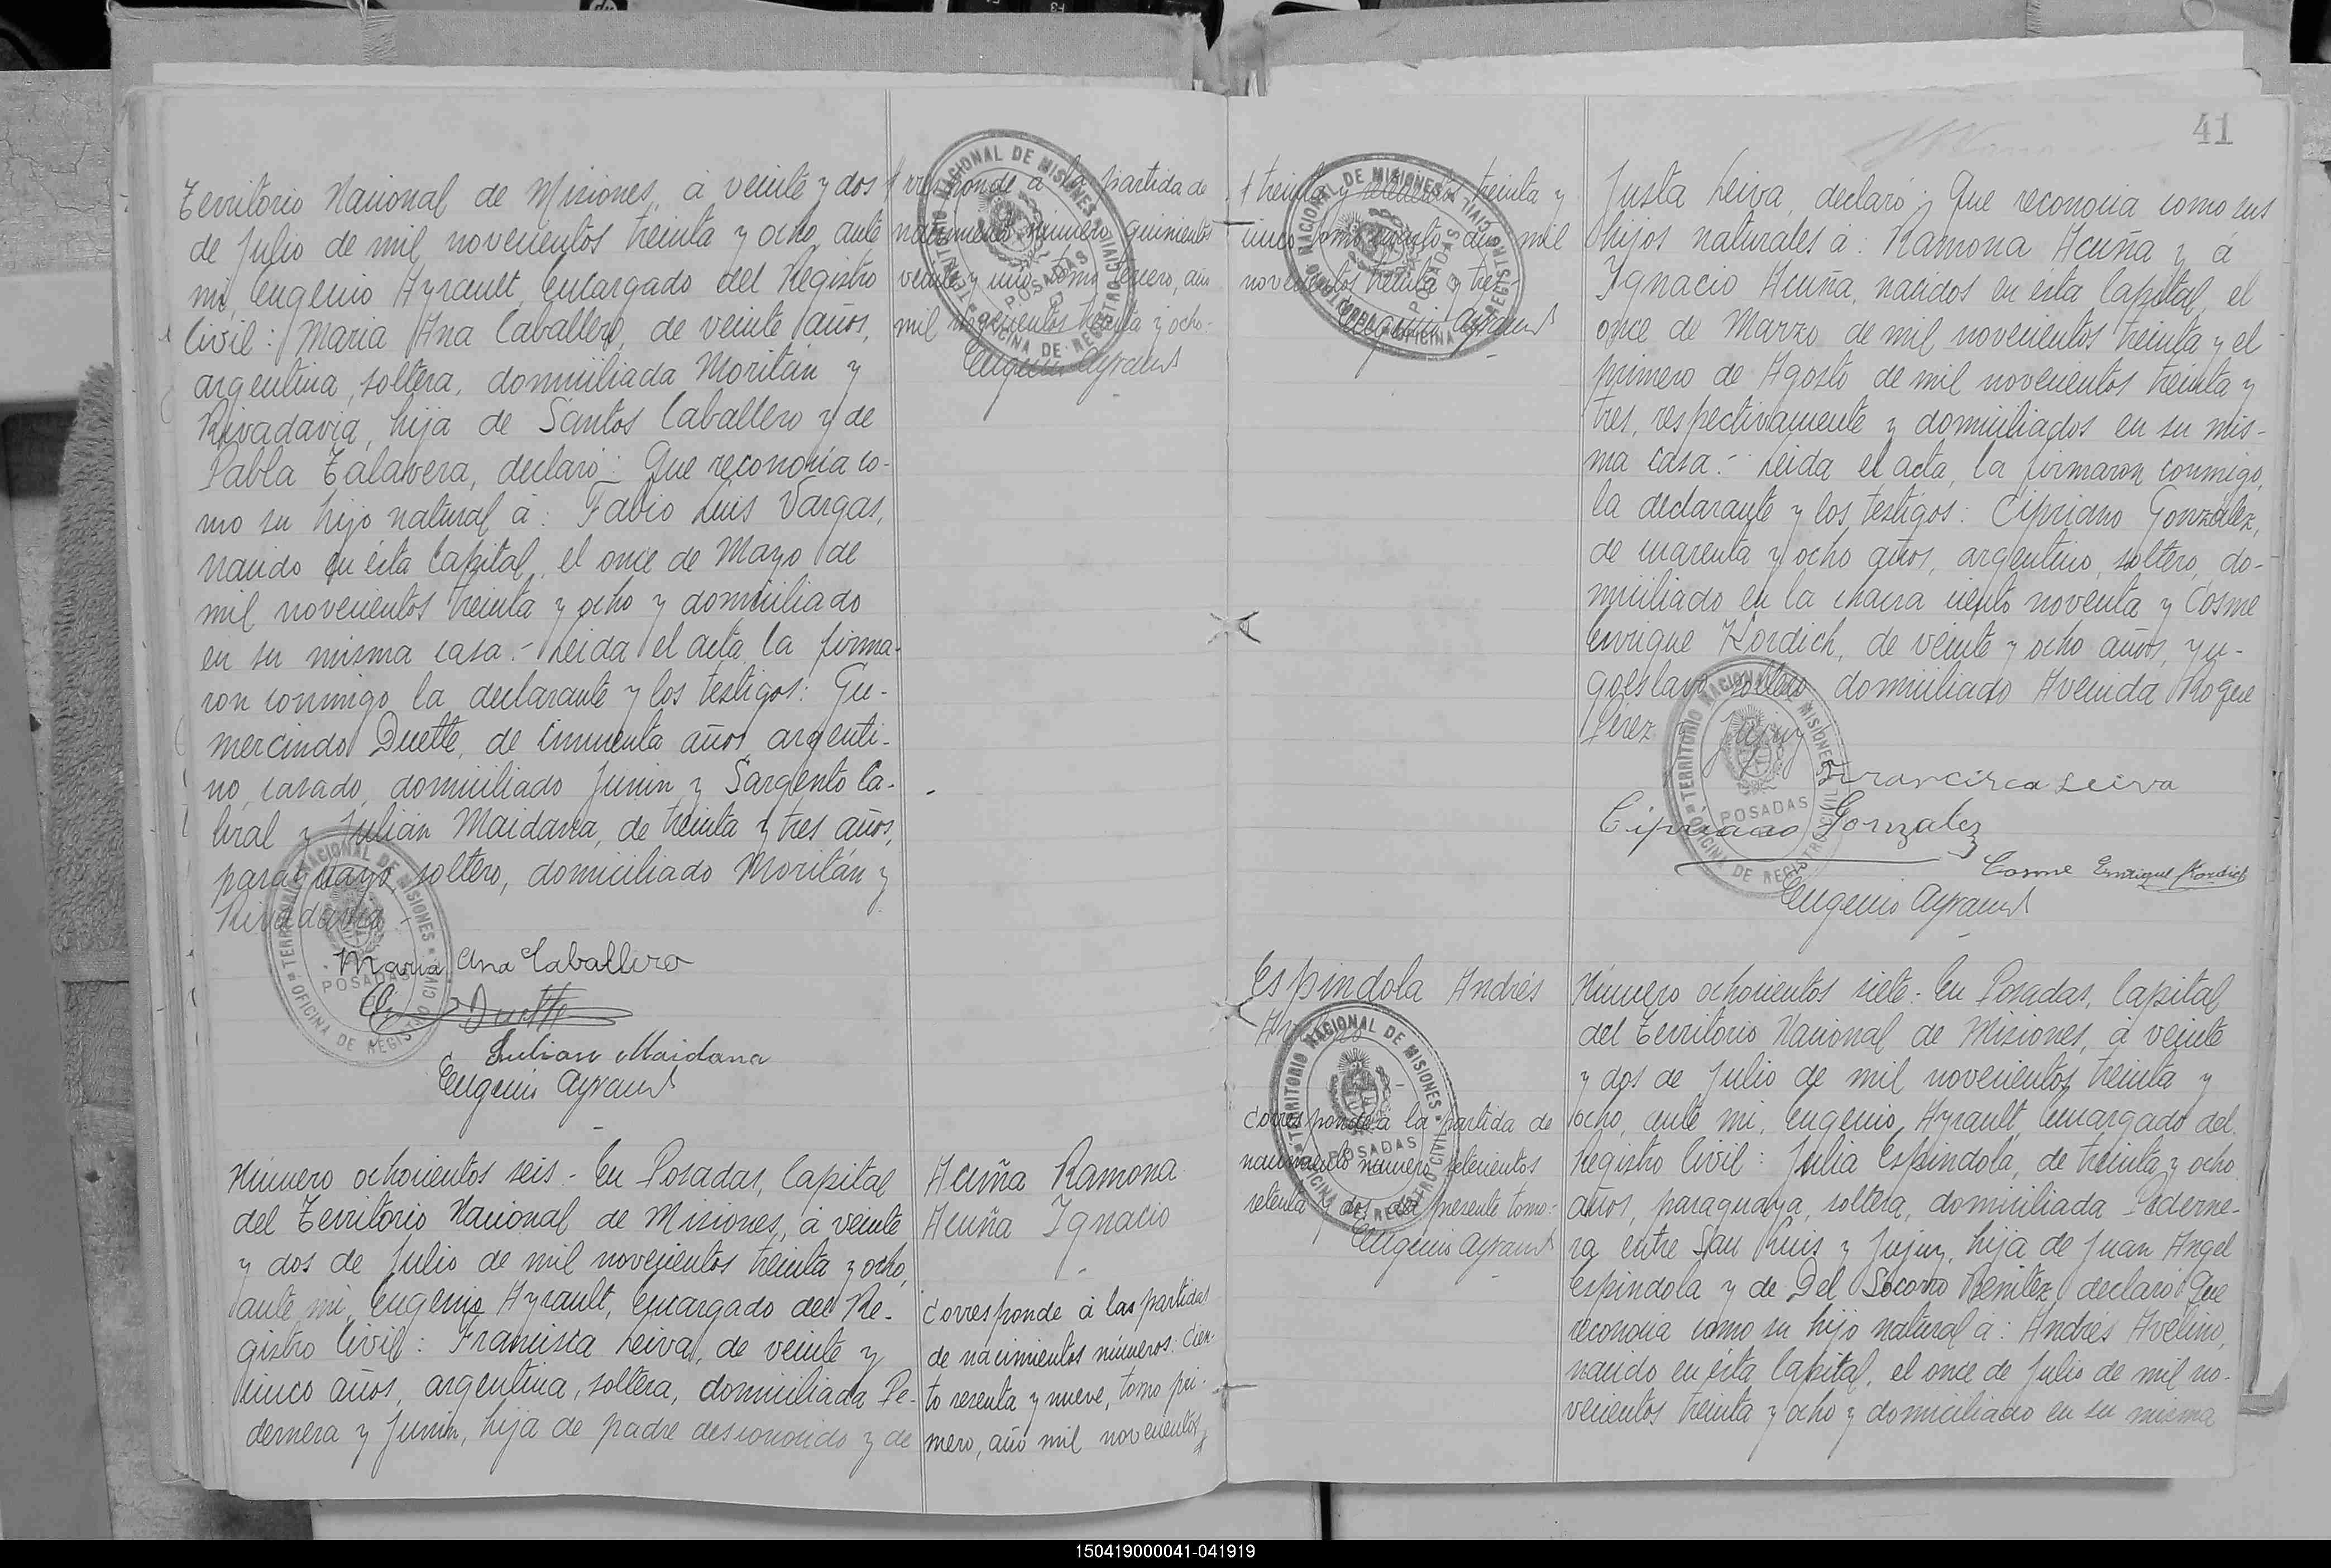 Territorio Nacional de Misiones, á veinte y dos
de Julio de mil novecientos treinta y ocho, ante
mí, Eugenio Ayrault, Encargado del Registro
Civil: Maria Ana Caballero, de veinte años,
argentina, soltera, domiciliada Moritán y
Rivadavia, hija de Santos Caballero y de
Pabla Talavera, declaró: Que reconocía co-
mo su hijo natural á: Fabio Luis Vargas,
nacido en ésta Capital, el once de Mayo de
mil novecientos treinta y ocho y domiciliado
en su misma casa.- Leida el acta, la firma-
ron conmigo la declarante y los testigos: Gu-
mercindo Duette, de cincuenta años, argenti-
no, casado, domiciliado Junin y Sargento Ca-
bral y Julián Maidana, de treinta y tres años,
paraguayo, soltero, domiciliado Moritán y
Rivadavia.-
Maria Ana Caballero
Duette
Julian Maidana
Eugenio Ayrault
Número ochocientos seis.- En Posadas, Capital
del Territorio Nacional de Misiones, á veinte
y dos de Julio de mil novecientos treinta y ocho,
ante mí, Eugenio Ayrault, Encargado del Re-
gistro Civil: Francisca Leiva, de veinte y
cinco años, argentina, soltera, domiciliada Pe-
dernera y Junin, hija de padre desconocido y de
rresponde á la partida de
nacimiento número quinientos
veinte y uno, tomo tercero, año
mil novecientos treinta y ocho.-
Eugenio Ayrault
TERRITORIO NACIONAL DE MISIONES
OFICINA DE REGISTRO CIVIL
POSADAS
Acuña Ramona
Acuña Ignacio
Corresponde á las partidas
de nacimientos números: Cien-
to sesenta y nueve, tomo pri-
mero, año mil novecientos
treinta y setecientos treinta y
cinco, tomo cuarto, año mil
novecientos treinta y tres.-
Eugenio Ayrault
TERRITORIO NACIONAL DE MISIONES
OFICINA DE REGISTRO CIVIL
POSADAS
Espindola Andrés
Corresponde á la partida de
nacimiento número setecientos
setenta y dos del presente tomo.-
Eugenio Ayrault
TERRITORIO NACIONAL DE MISIONES
OFICINA DE REGISTRO CIVIL
POSADAS
41
Justa Leiva, declaró: Que reconocia como sus
hijos naturales á: Ramona Acuña y á
Ignacio Acuña, nacidos en ésta Capital, el
once de Marzo de mil novecientos treinta y el
primero de Agosto de mil novecientos treinta y
tres, respectivamente y domiciliados en su mis-
ma casa.- Leida el acta, la firmaron conmigo,
la declarante y los testigos: Cipriano González,
de cuarenta y ocho años, argentino, soltero, do-
miciliado en la chacra ciento noventa y Cosme
Enrique Kordich, de veinte y ocho años, yu-
goeslavo, soltero, domiciliado Avenida Roque
Pérez y Jujuy
Francisca Leiva
Cipriano Gonzalez
Cosme Enrique Kordich
Eugenio Ayrault
TERRITORIO NACIONAL DE MISIONES
OFICINA DE REGISTRO CIVIL
POSADAS
Número ochocientos siete.- En Posadas, Capital
del Territorio Nacional de Misiones, á veinte
y dos de Julio de mil novecientos treinta y
ocho, ante mí, Eugenio Ayrault, Encargado del
Registro Civil: Julia Espindola, de treinta y ocho
años, paraguaya, soltera, domiciliada Pederne-
ra entre San Luis y Jujuy, hija de Juan Angel
Espindola y de Del Socorro Benitez, declaró: Que
reconocia como su hijo natural á: Andrés Avelino,
nacido en ésta Capital, el once de Julio de mil no-
vecientos treinta y ocho y domiciliado en su misma
150419000041-041919